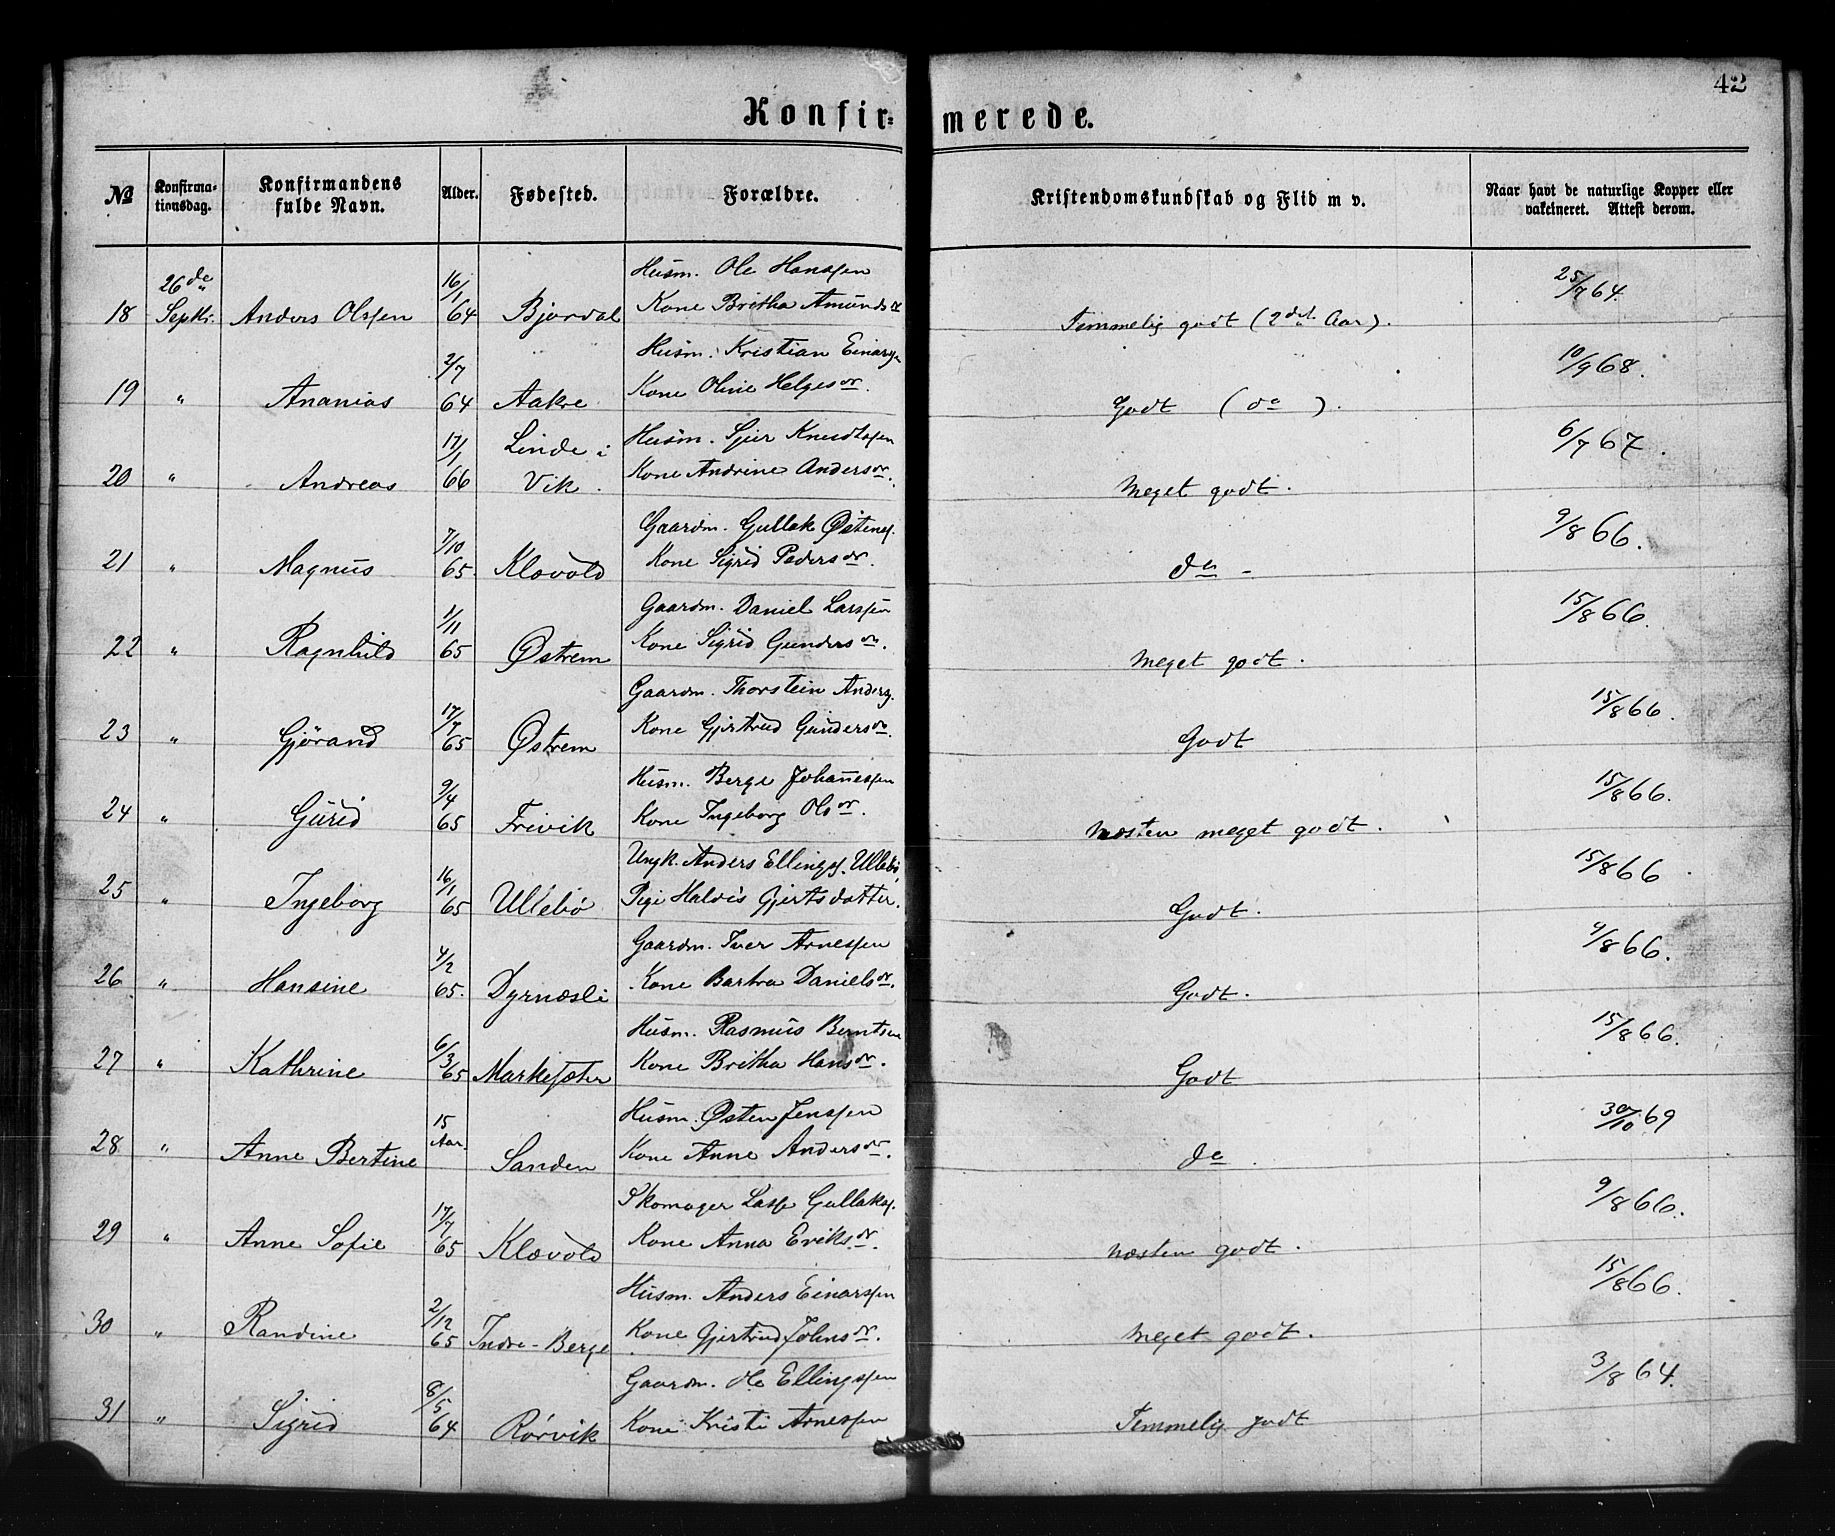 42
Konfir= merede.
№ Konfirma-tionsdag. Konfirmandens fulde Navn. Alder. Fødested. Forældre. Kristendomskundskab og Flid m v. Naar havt de naturlige Kopper eller vakcineret. Attest derom.
26de Septbr. 16/1 Husm. Ole Hanssen 25/7 64.
18 Anders Olssen 64 Bjordal Kone Britha Amundsdr Temmelig godt (2det Aar).
2/7 Husm. Kristian Einarsen 10/9 68.
19 " Ananias 64 Aakre Kone Oline Helgesdr. Godt (do).
17/1 Linde i Husm. Sjur Knudtssen 6/7 67.
20 " Andreas 66 Vik. Kone Andrine Andersdr. Meget godt.
7/10 Gaardm. Gullak Østens. 9/8 66.
21 " Magnus 65. Klævold Kone Sigrid Pedersdr. do -
1/11 Gaardm. Daniel Larssen 15/8 66.
22 " Ragnhild 65 Østrem Kone Sigrid Gundersdr. Meget godt.
17/7 Gaardm. Thorstein Anders. 15/8 66.
23 " Gjørand 65 Østrem Kone Gjertrud Gundersdr. Godt
9/4 Husm. Berge Johannessen 15/8 66.
24 " Gurid 65 Frivik Kone Ingeborg Olsdr. Næsten meget godt.
16/1 Ungk. Anders Ellings. Ullebø, 15/8 66
25 " Ingeborg 65 Ullebø Pige Haldis Gjertsdatter. Godt.
4/2 Gaardm. Iver Arnessen 9/8 66.
26 " Hansine 65. Dyrnæsli Kone Barbra Danielsdr. Godt.
6/3 Husm. Rasmus Berntsen 15/8 66.
27 " Kathrine 65 Markesæter Kone Britha Hansdr. Godt
15 Aar. Husm. Østen Jenssen 30/10 69
28 " Anne Bertine Sanden Kone Anne Andersdr. do
17/7 Skomager Lasse Gullaks. 9/8 66.
29 " Anne Sofie 65 Klævold Kone Anna Eriksdr. Næsten godt.
2/12 Husm. Anders Einarssen 15/8 66.
30 " Randine 65 Indre-Berge Kone Gjertrud Johnsdr. Meget godt.
8/5 Gaardm. Ole Ellingssen 3/8 64.
31 " Sigrid 64 Rørvik Kone Kristi Arnessen Temmelig godt